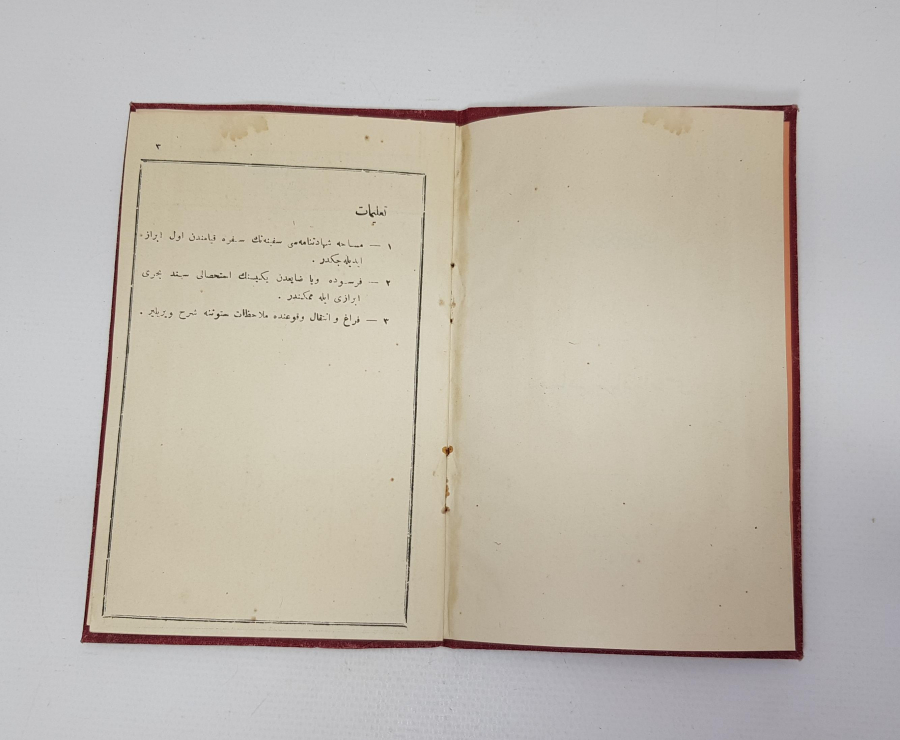 ٣
تعليمات
١ — مساحه شهادتنامه‌سى سفينه‌نك سفره قيامندن اول ابراز
ايديله‌جكدر .
٢ — فرسوده ويا ضايعدن يكيسنك استحصالى سند بحرى
ابرازى ايله ممكندر .
٣ — فراغ و انتقال وقوعنده ملاحظات ستوننه شرح ويريلير .